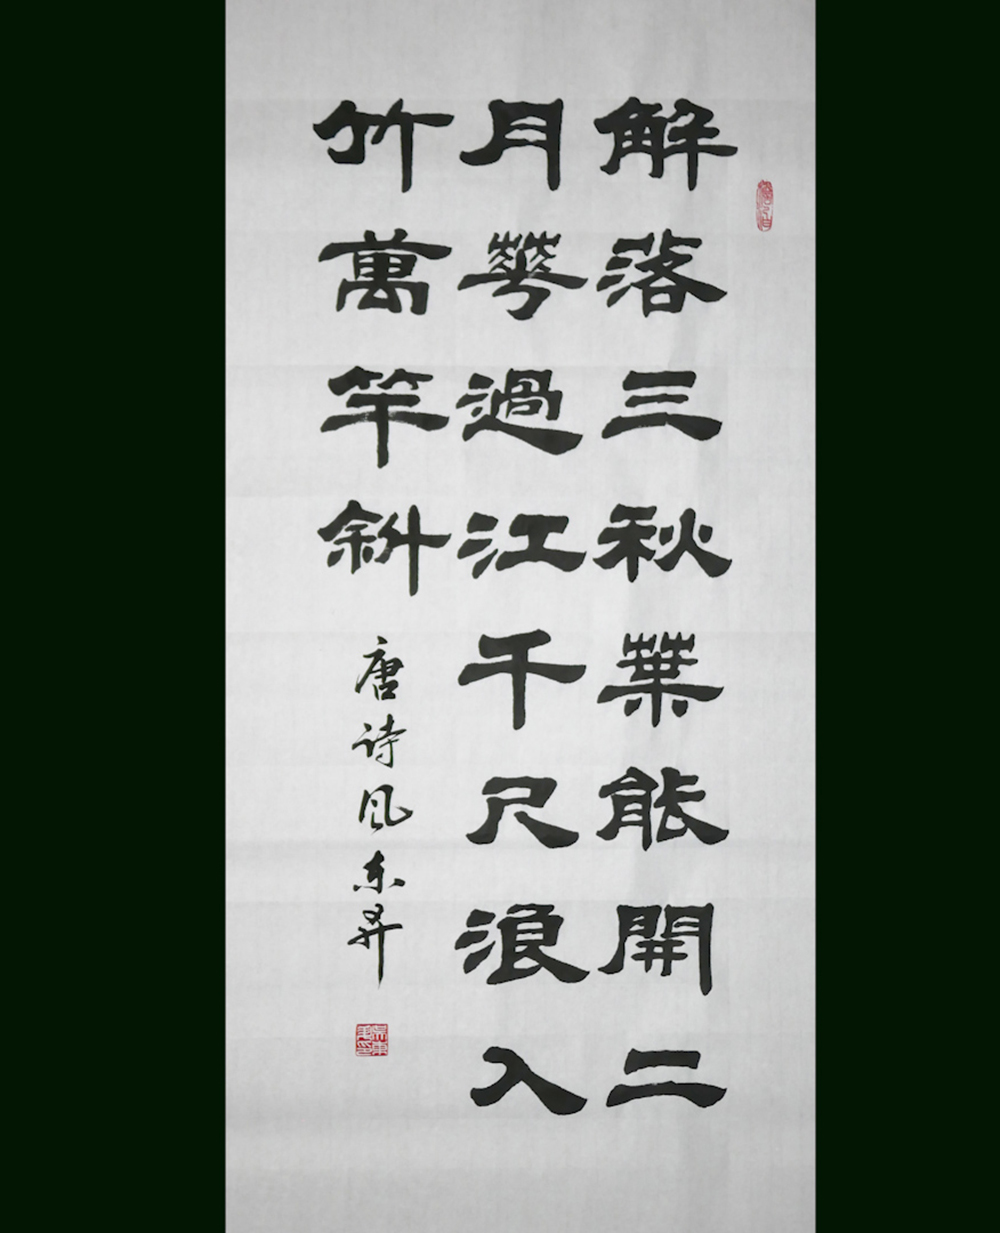 解落三秋葉能開二
月華過江千尺浪入
竹萬竿斜
唐诗风东昇